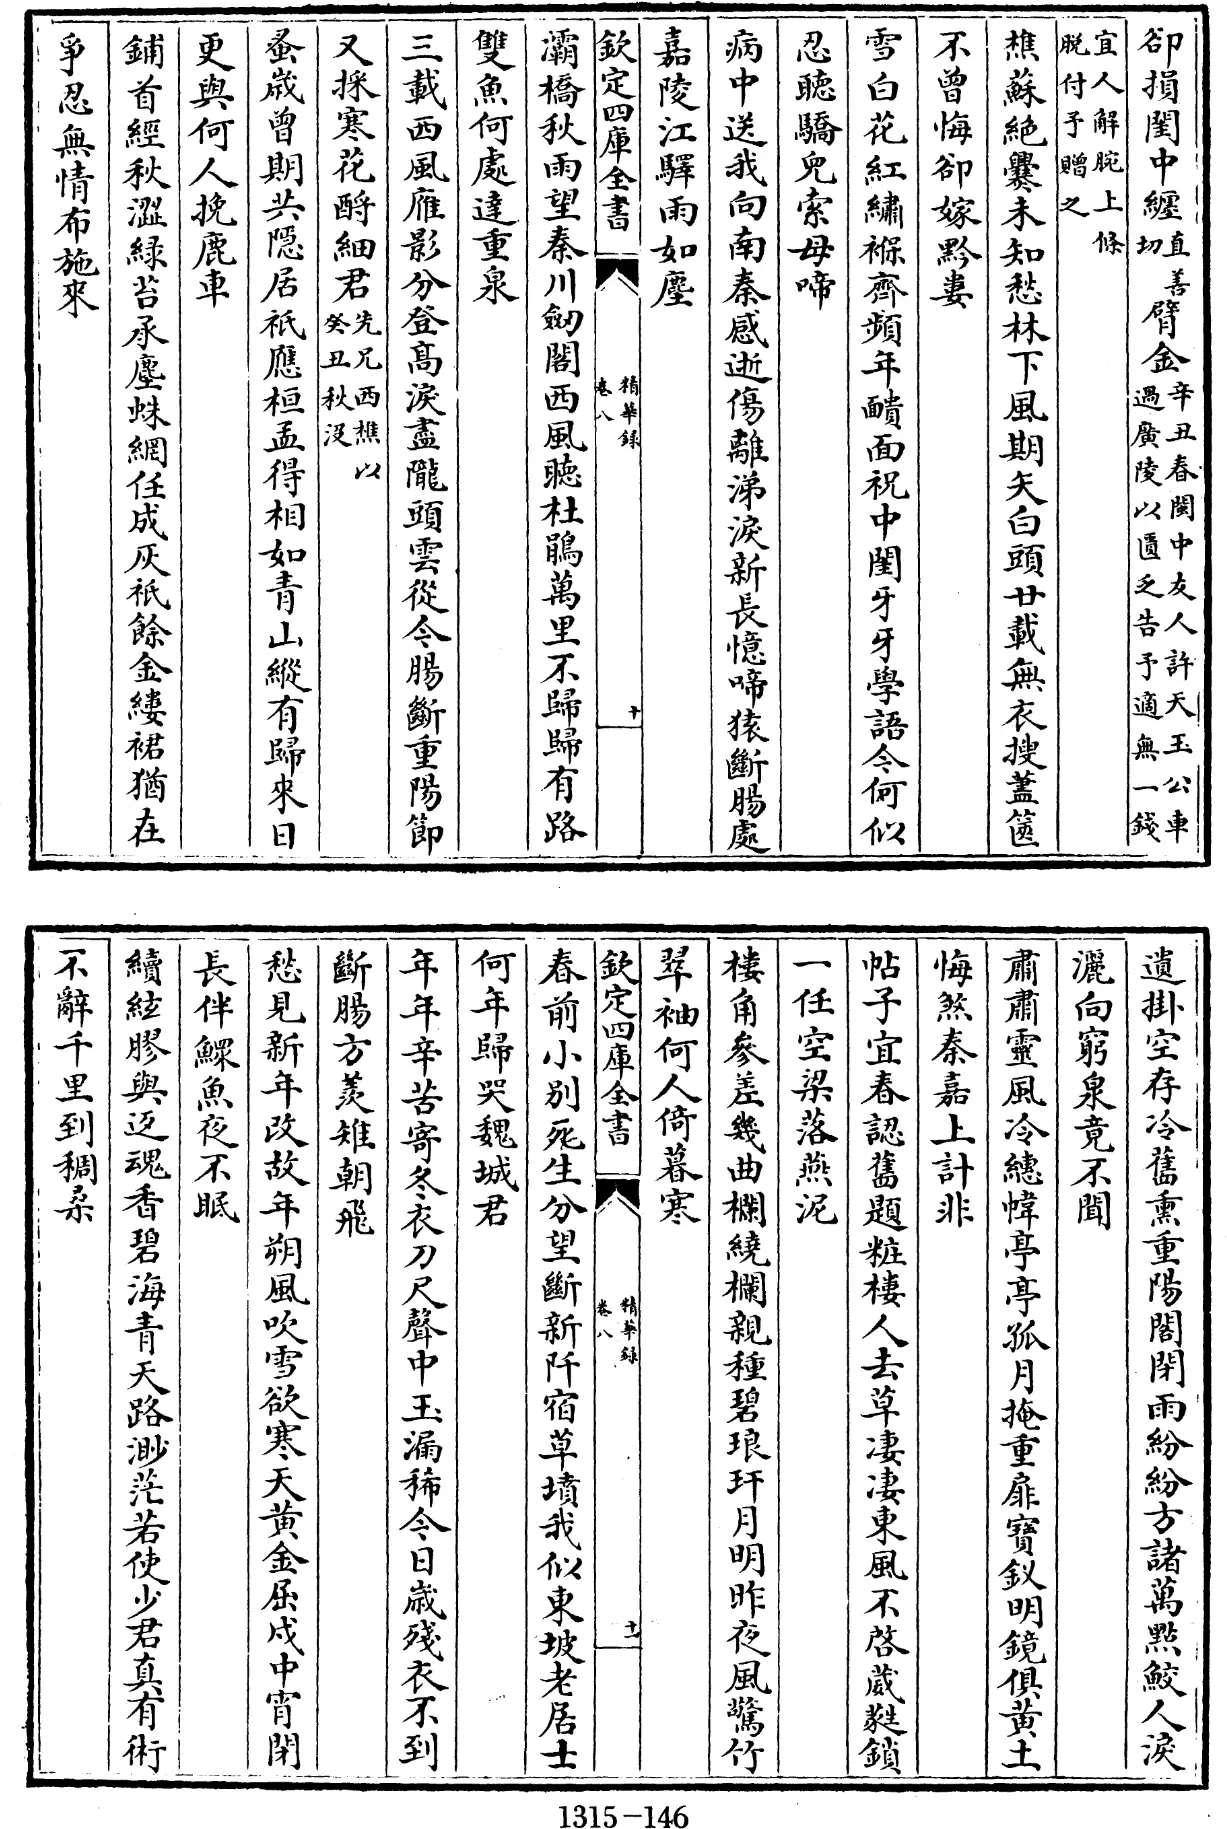 卻損閨中纏直善切臂金辛丑春閩中友人許天玉公車過廣陵以匱乏告予適無一錢
宜人解腕上條脱付予贈之
樵蘇絶爨未知愁林下風期矢白頭廿載無衣搜藎篋
不曾悔卻嫁黔婁
雪白花紅繡褓齊頻年靧面祝中閨牙牙學語今何似
忍聽驕兒索母啼
病中送我向南秦感逝傷離涕淚新長憶啼猿斷腸處
嘉陵江驛雨如塵
欽定四庫全書
精華録
卷八
十
灞橋秋雨望秦川劒閣西風聴杜鵑萬里不歸歸有路
雙魚何處達重泉
三載西風雁影分登髙淚盡隴頭雲從今腸斷重陽節
又採寒花酹細君先兄西樵以癸丑秋没
蚤嵗曾期共隱居祇應桓孟得相如青山縱有歸來日
更與何人挽鹿車
鋪首經秋澀緑苔承塵蛛網任成灰祇餘金縷裙猶在
爭忍無情布施來
遺掛空存冷舊熏重陽閣閉雨紛紛方諸萬點鮫人淚
灑向窮泉竟不聞
肅肅靈風冷繐幃亭亭孤月掩重扉寶釵明鏡俱黄土
悔煞秦嘉上計非
帖子宜春認舊題粧樓人去草凄凄東風不啓葳蕤鎖
一任空梁落燕泥
樓角參差幾曲欄繞欄親種碧琅玕月明昨夜風驚竹
翠袖何人倚暮寒
欽定四庫全書
精華録
卷八
十一
春前小别死生分望斷新阡宿草墳我似東坡老居士
何年歸哭魏城君
年年辛苦寄冬衣刀尺聲中玉漏稀今日嵗殘衣不到
斷腸方羨雉朝飛
愁見新年改故年朔風吹雪欲寒天黄金屈戍中宵閉
長伴鰥魚夜不眠
續絃膠與返魂香碧海青天路渺茫若使少君真有術
不辭千里到稠桑
1315-146